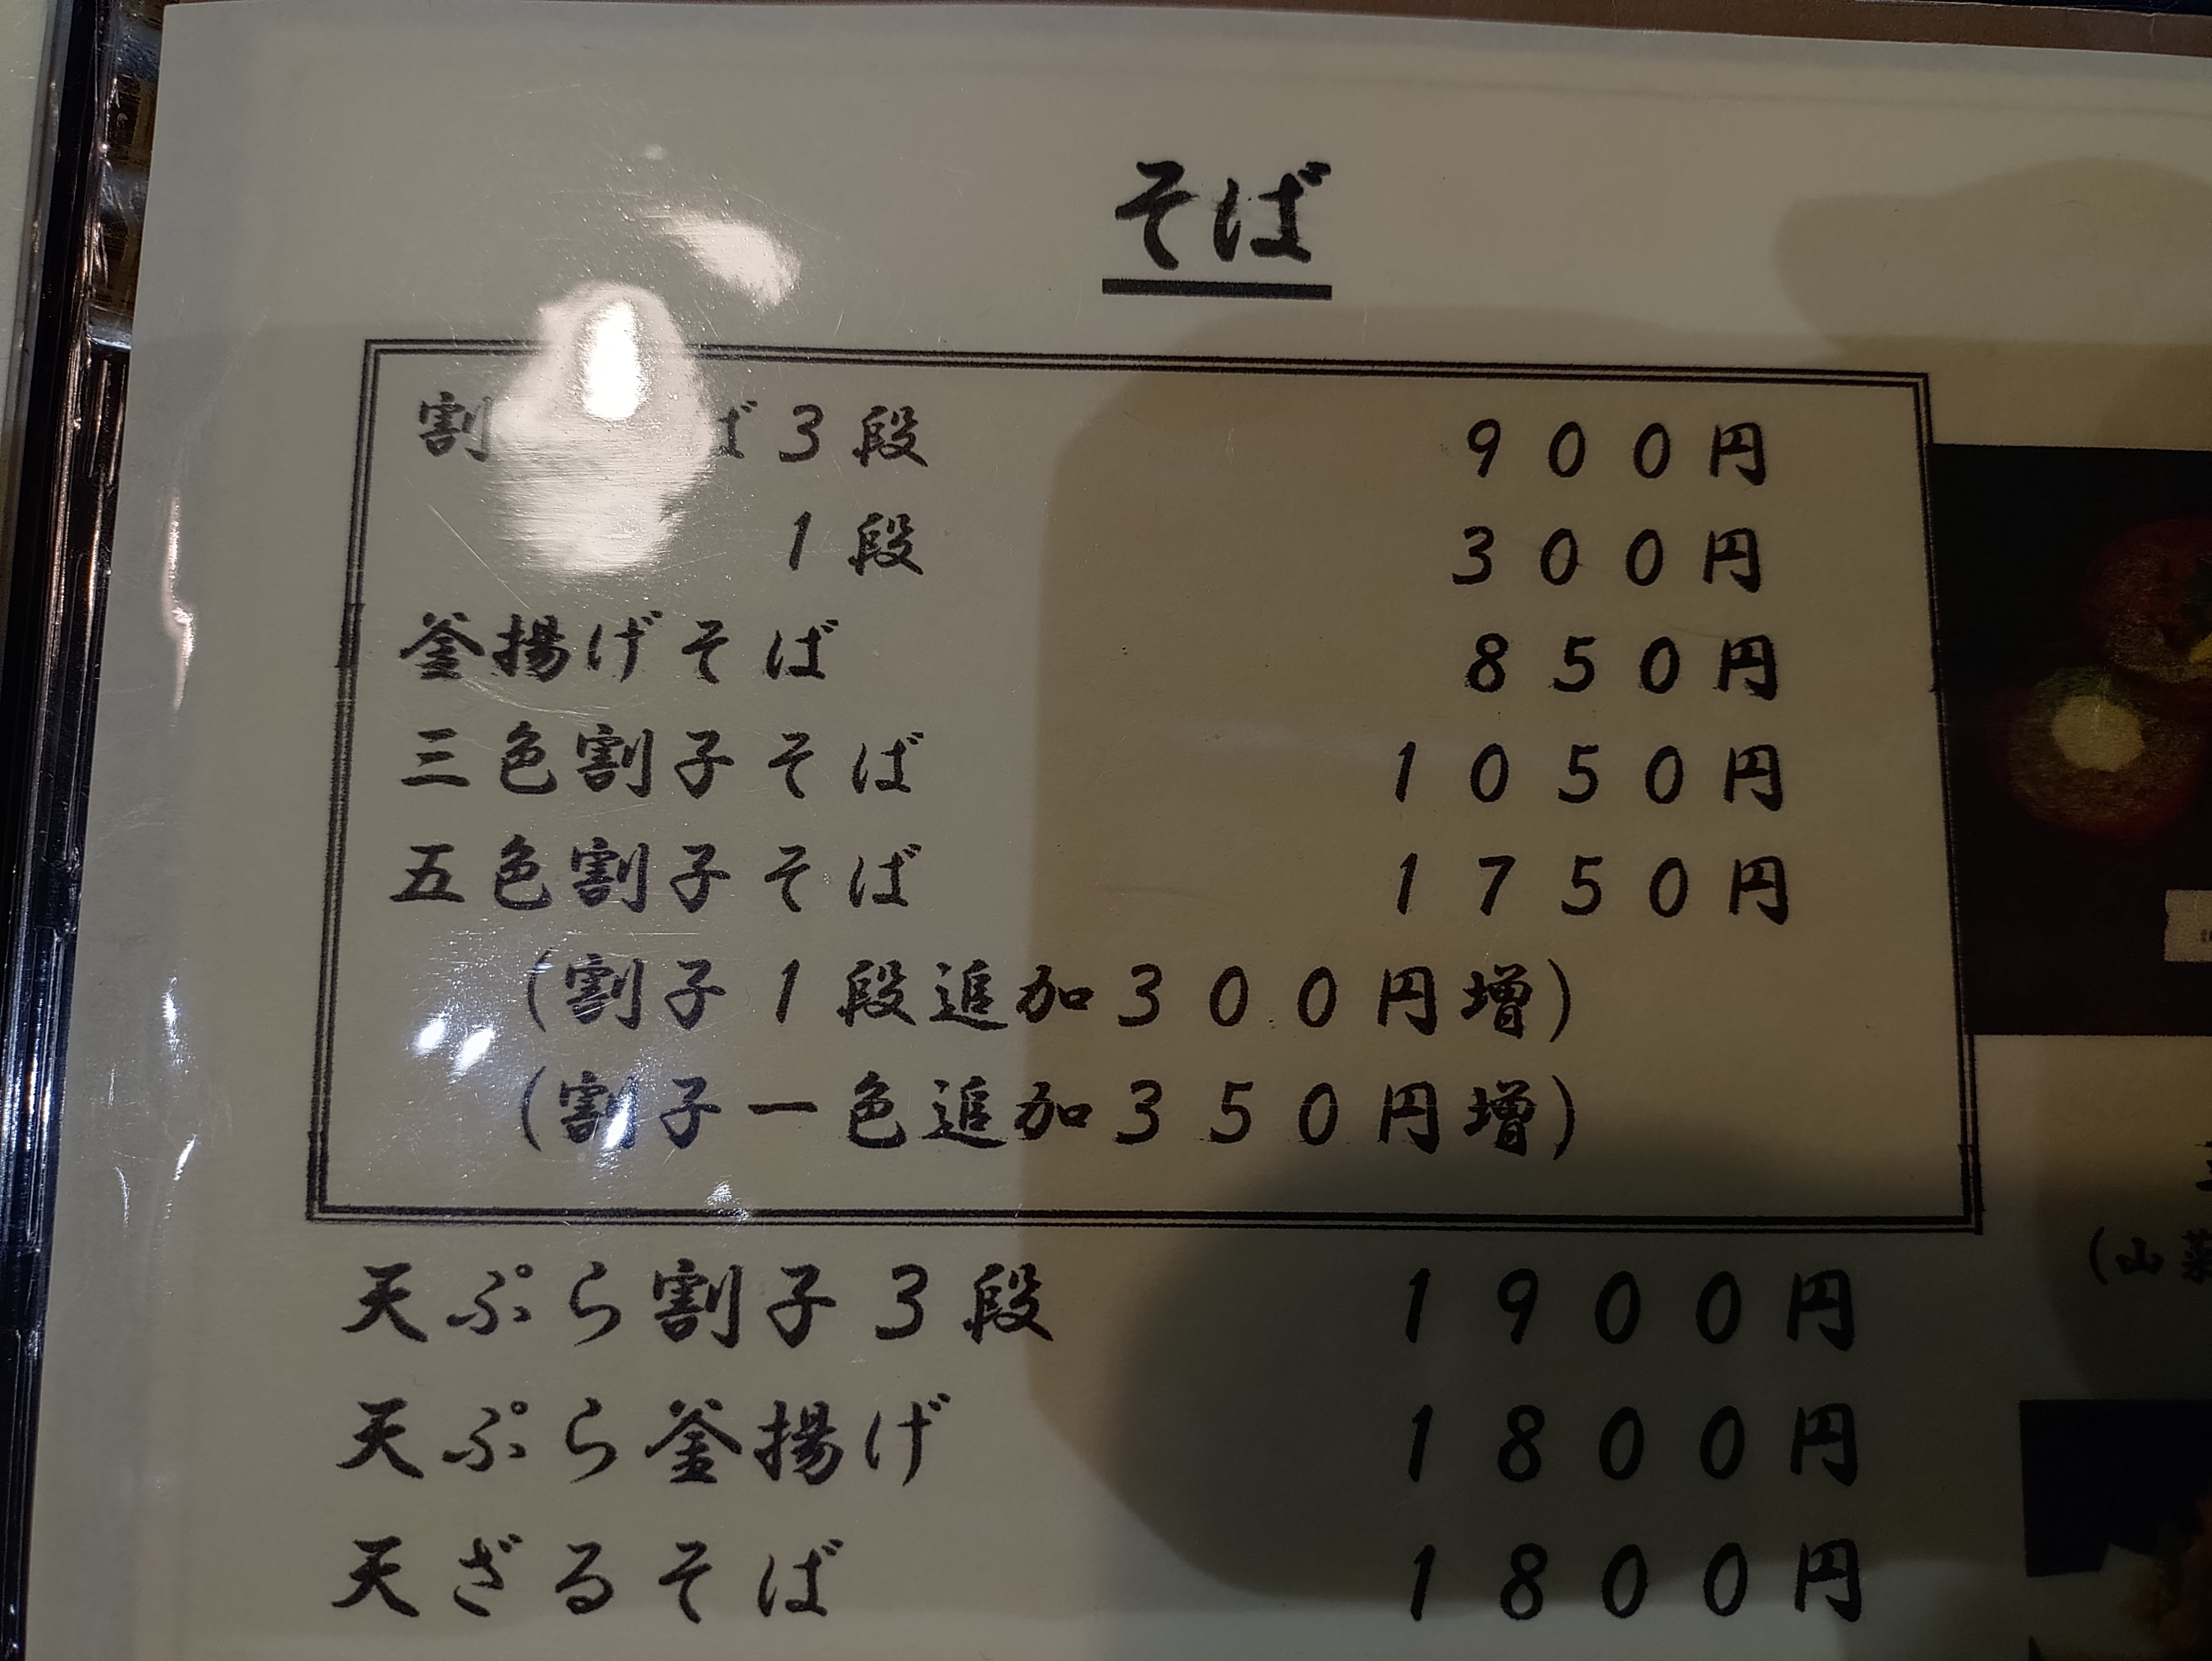 そば
割 ば3段 900円
1段 300円
釜揚げそば 850円
三色割子そば 1050円
五色割子そば 1750円
(割子1段追加300円増)
(割子一色追加350円増)
天ぷら割子3段 1900円
(山菜
天ぷら釜揚げ 1800円
天ざるそば 1800円